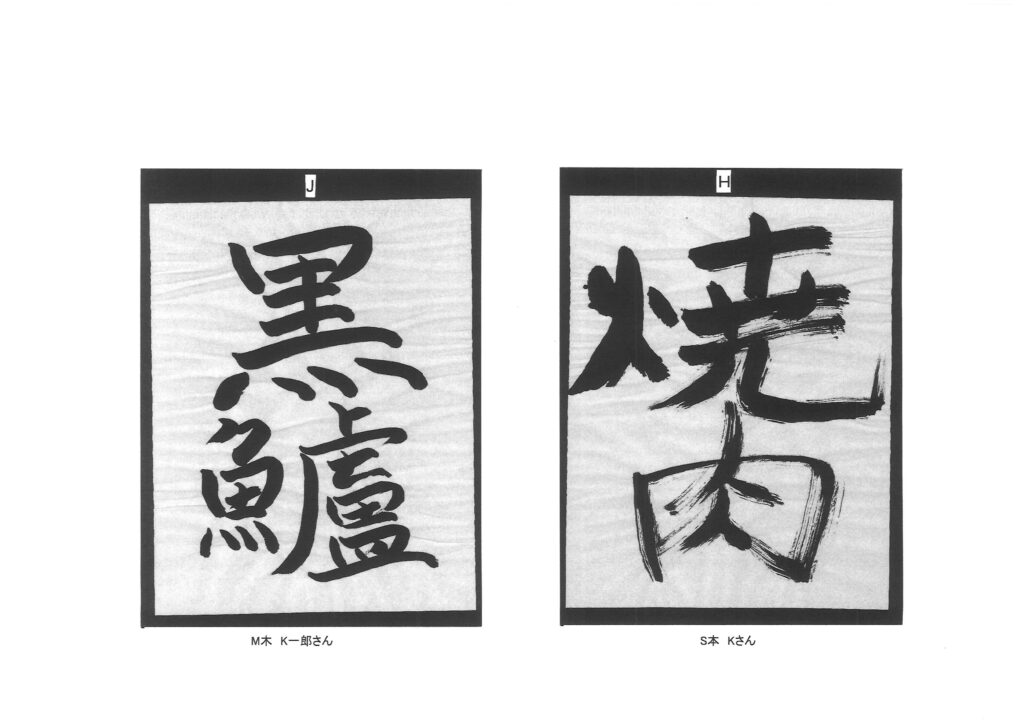 J
黒
鱸
M木 K一郎さん
H
焼
肉
S本 Kさん